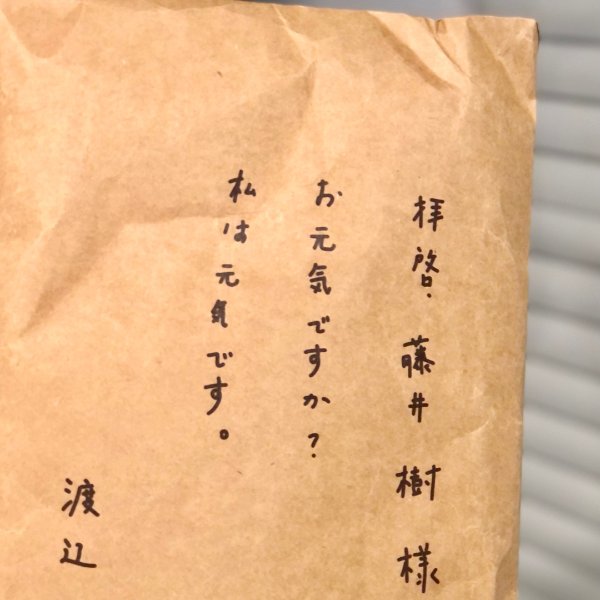 拝啓、藤井樹様
お元気ですか?
私は元気です。
渡辺